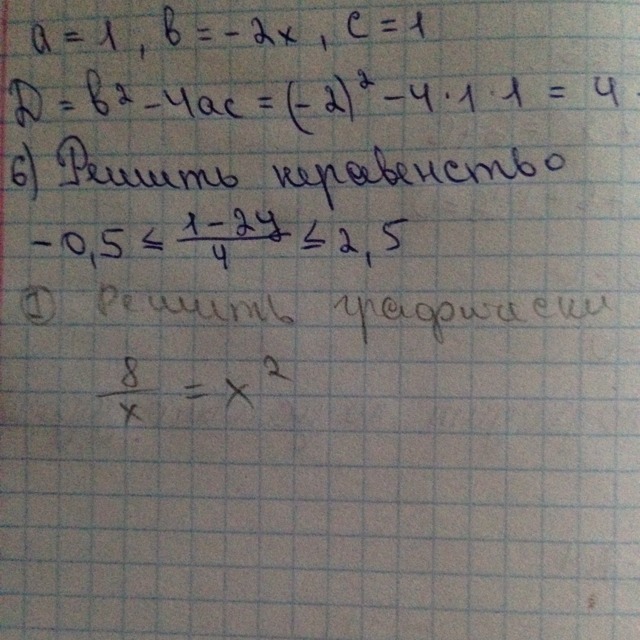 a = 1, b = -2x, c = 1
Д = b² - 4ac = (-2)² - 4·1·1 = 4
6) Решить неравенство
-0,5 ≤ (1-2y)/4 ≤ 2,5
① Решить графически
8/x = x²